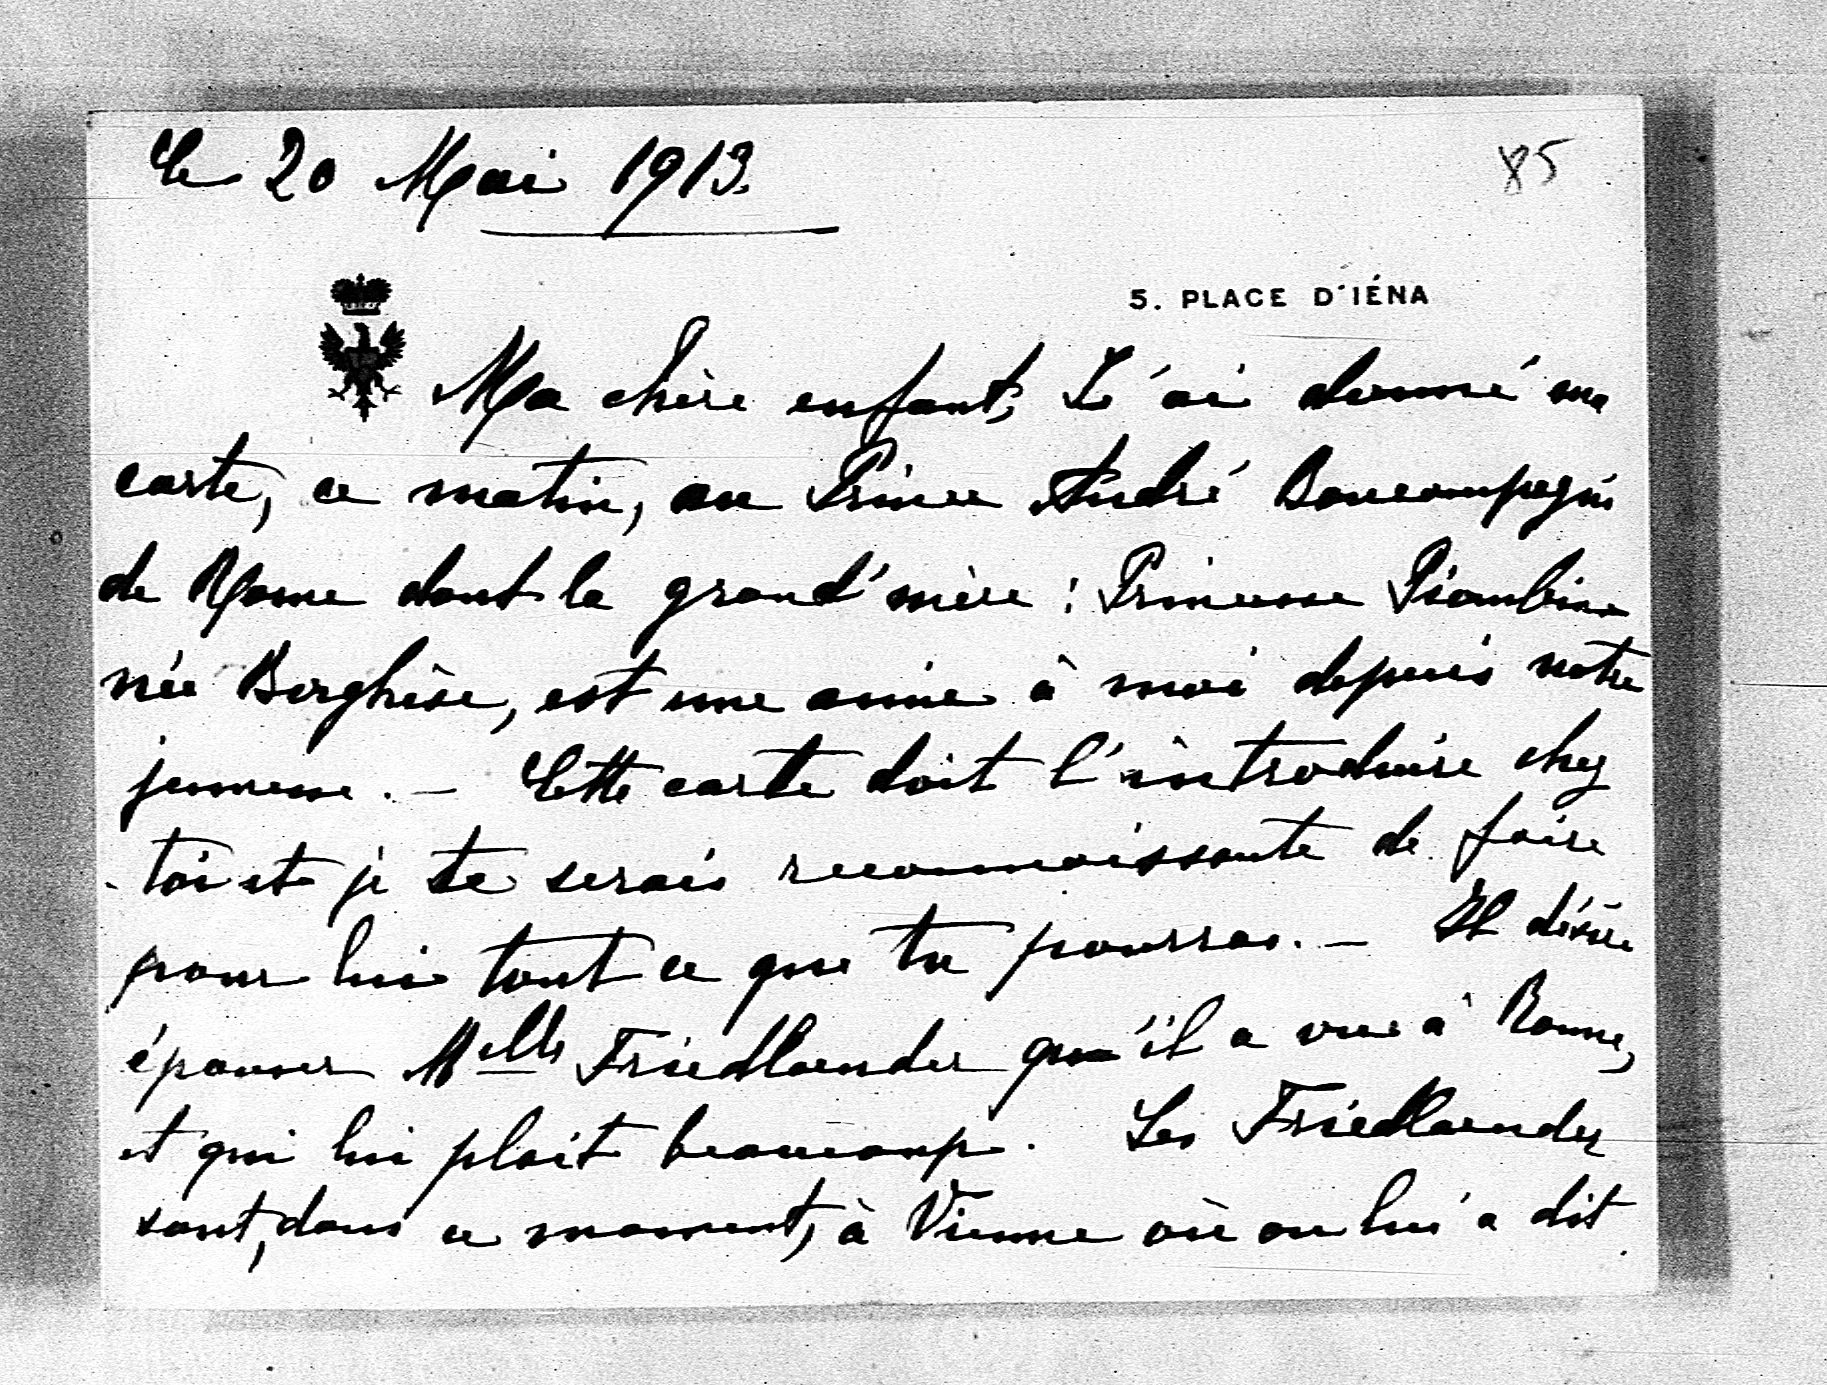 Le 20 Mai 1913.
85
5. PLACE D'IÉNA
Ma chère enfant, J'ai donné ma
carte, ce matin, au Prince André Boncompagni
de Rome dont la grand'mère : Princesse Piombino
née Borghèse, est une amie à moi depuis notre
jeunesse. — Cette carte doit l'introduire chez
toi et je te serais reconnaissante de faire
pour lui tout ce que tu pourras. — Il désire
épouser Melle Friedlaender qu'il a vue à Rome,
et qui lui plait beaucoup. Les Friedlaender
sont, dans ce moment, à Vienne où on lui a dit